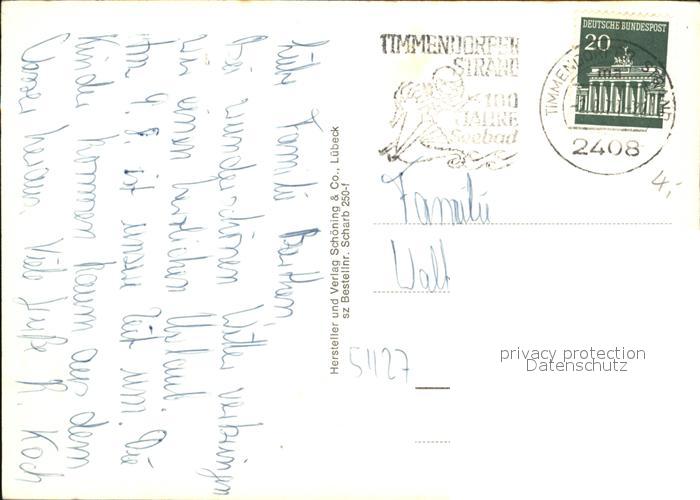 Liebe Familie
Bei wunderschönem Wetter verbringen
wir einen herrlichen Urlaub.
Am 9. 8. ist unsere Zeit um. Die
Kinder kommen kaum aus dem
Wasser heraus. Viele Grüße R. Koch
Hersteller und Verlag Schöning & Co., Lübeck
sz Bestellnr. Scharb 250-f
TIMMENDORFER
STRAND
100
JAHRE
Seebad
DEUTSCHE BUNDESPOST
20
TIMMENDORFER STRAND
2408
4,-
Familie
Walt
5427
privacy protection
Datenschutz